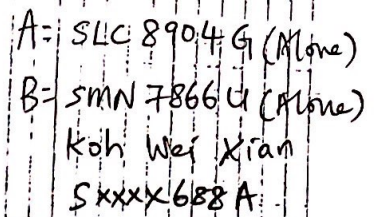 A= SLC 8904 G (Alone)
B= SMN 7866 U (Alone)
Koh Wei Xian
SXXXX688A